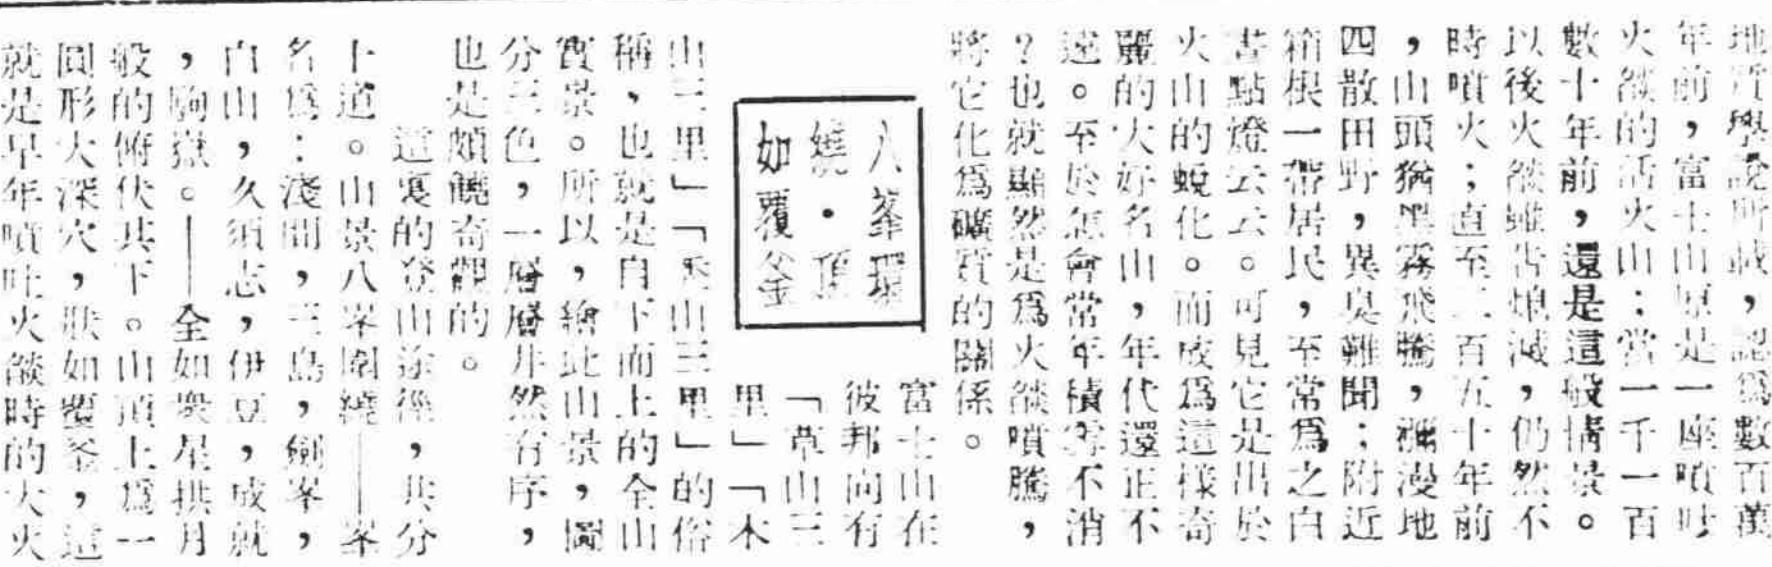 地質學說所載，認爲數百萬
年前，富士山原是一座噴吐
火燄的活火山；當一千一百
數十年前，還是這般情景。
以後火燄雖告熄滅，仍然不
時噴火；直至二百五十年前
，山頭猶黑霧飛騰，瀰漫地
四散田野，異臭難聞；附近
箱根一帶居民，至常爲之白
晝點燈云云。可見它是出於
火山的蛻化。而成爲這樣奇
麗的大好名山，年代還正不
遠。至於怎會常年積雪不消
？也就顯然是爲火燄噴騰，
將它化爲礦質的關係。
八峯環
繞・頂
如覆釜
富士山在
彼邦向有
「草山三
里」「木
山三里」「禿山三里」的俗
稱，也就是自下而上的全山
實景。所以，繪此山景，圖
分三色，一層層井然有序，
也是頗饒奇觀的。
這裏的登山途徑，共分
十道。山景八峯圍繞——峯
名爲：淺間，三島，劍峯，
白山，久須志，伊豆，成就
，駒嶽。——全如衆星拱月
般的俯伏其下。山頂上爲一
圓形大深穴，狀如覆釜，這
就是早年噴吐火燄時的大火